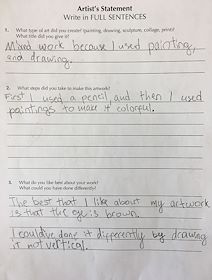 Artist's Statement
Write in FULL SENTENCES
1. What type of art did you create? (painting, drawing, sculpture, collage, print)?
What title did you give it?
Mixed work because I used painting,
and drawing.
2. What steps did you take to make this artwork?
First I used a pencil and then I used
paintings to make it colorful.
3. What do you like best about your work?
What could you have done differently?
The best that I like about my artwork
is that the eye is brown.
I could've done it differently by drawing
it not vertical.